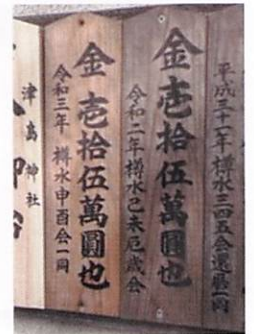 平成三十一年樽水三四五会還暦一同
金壱拾伍萬圓也
令和二年樽水己未厄歳会
金壱拾伍萬圓也
令和三年樽水申酉会一同
津島神社